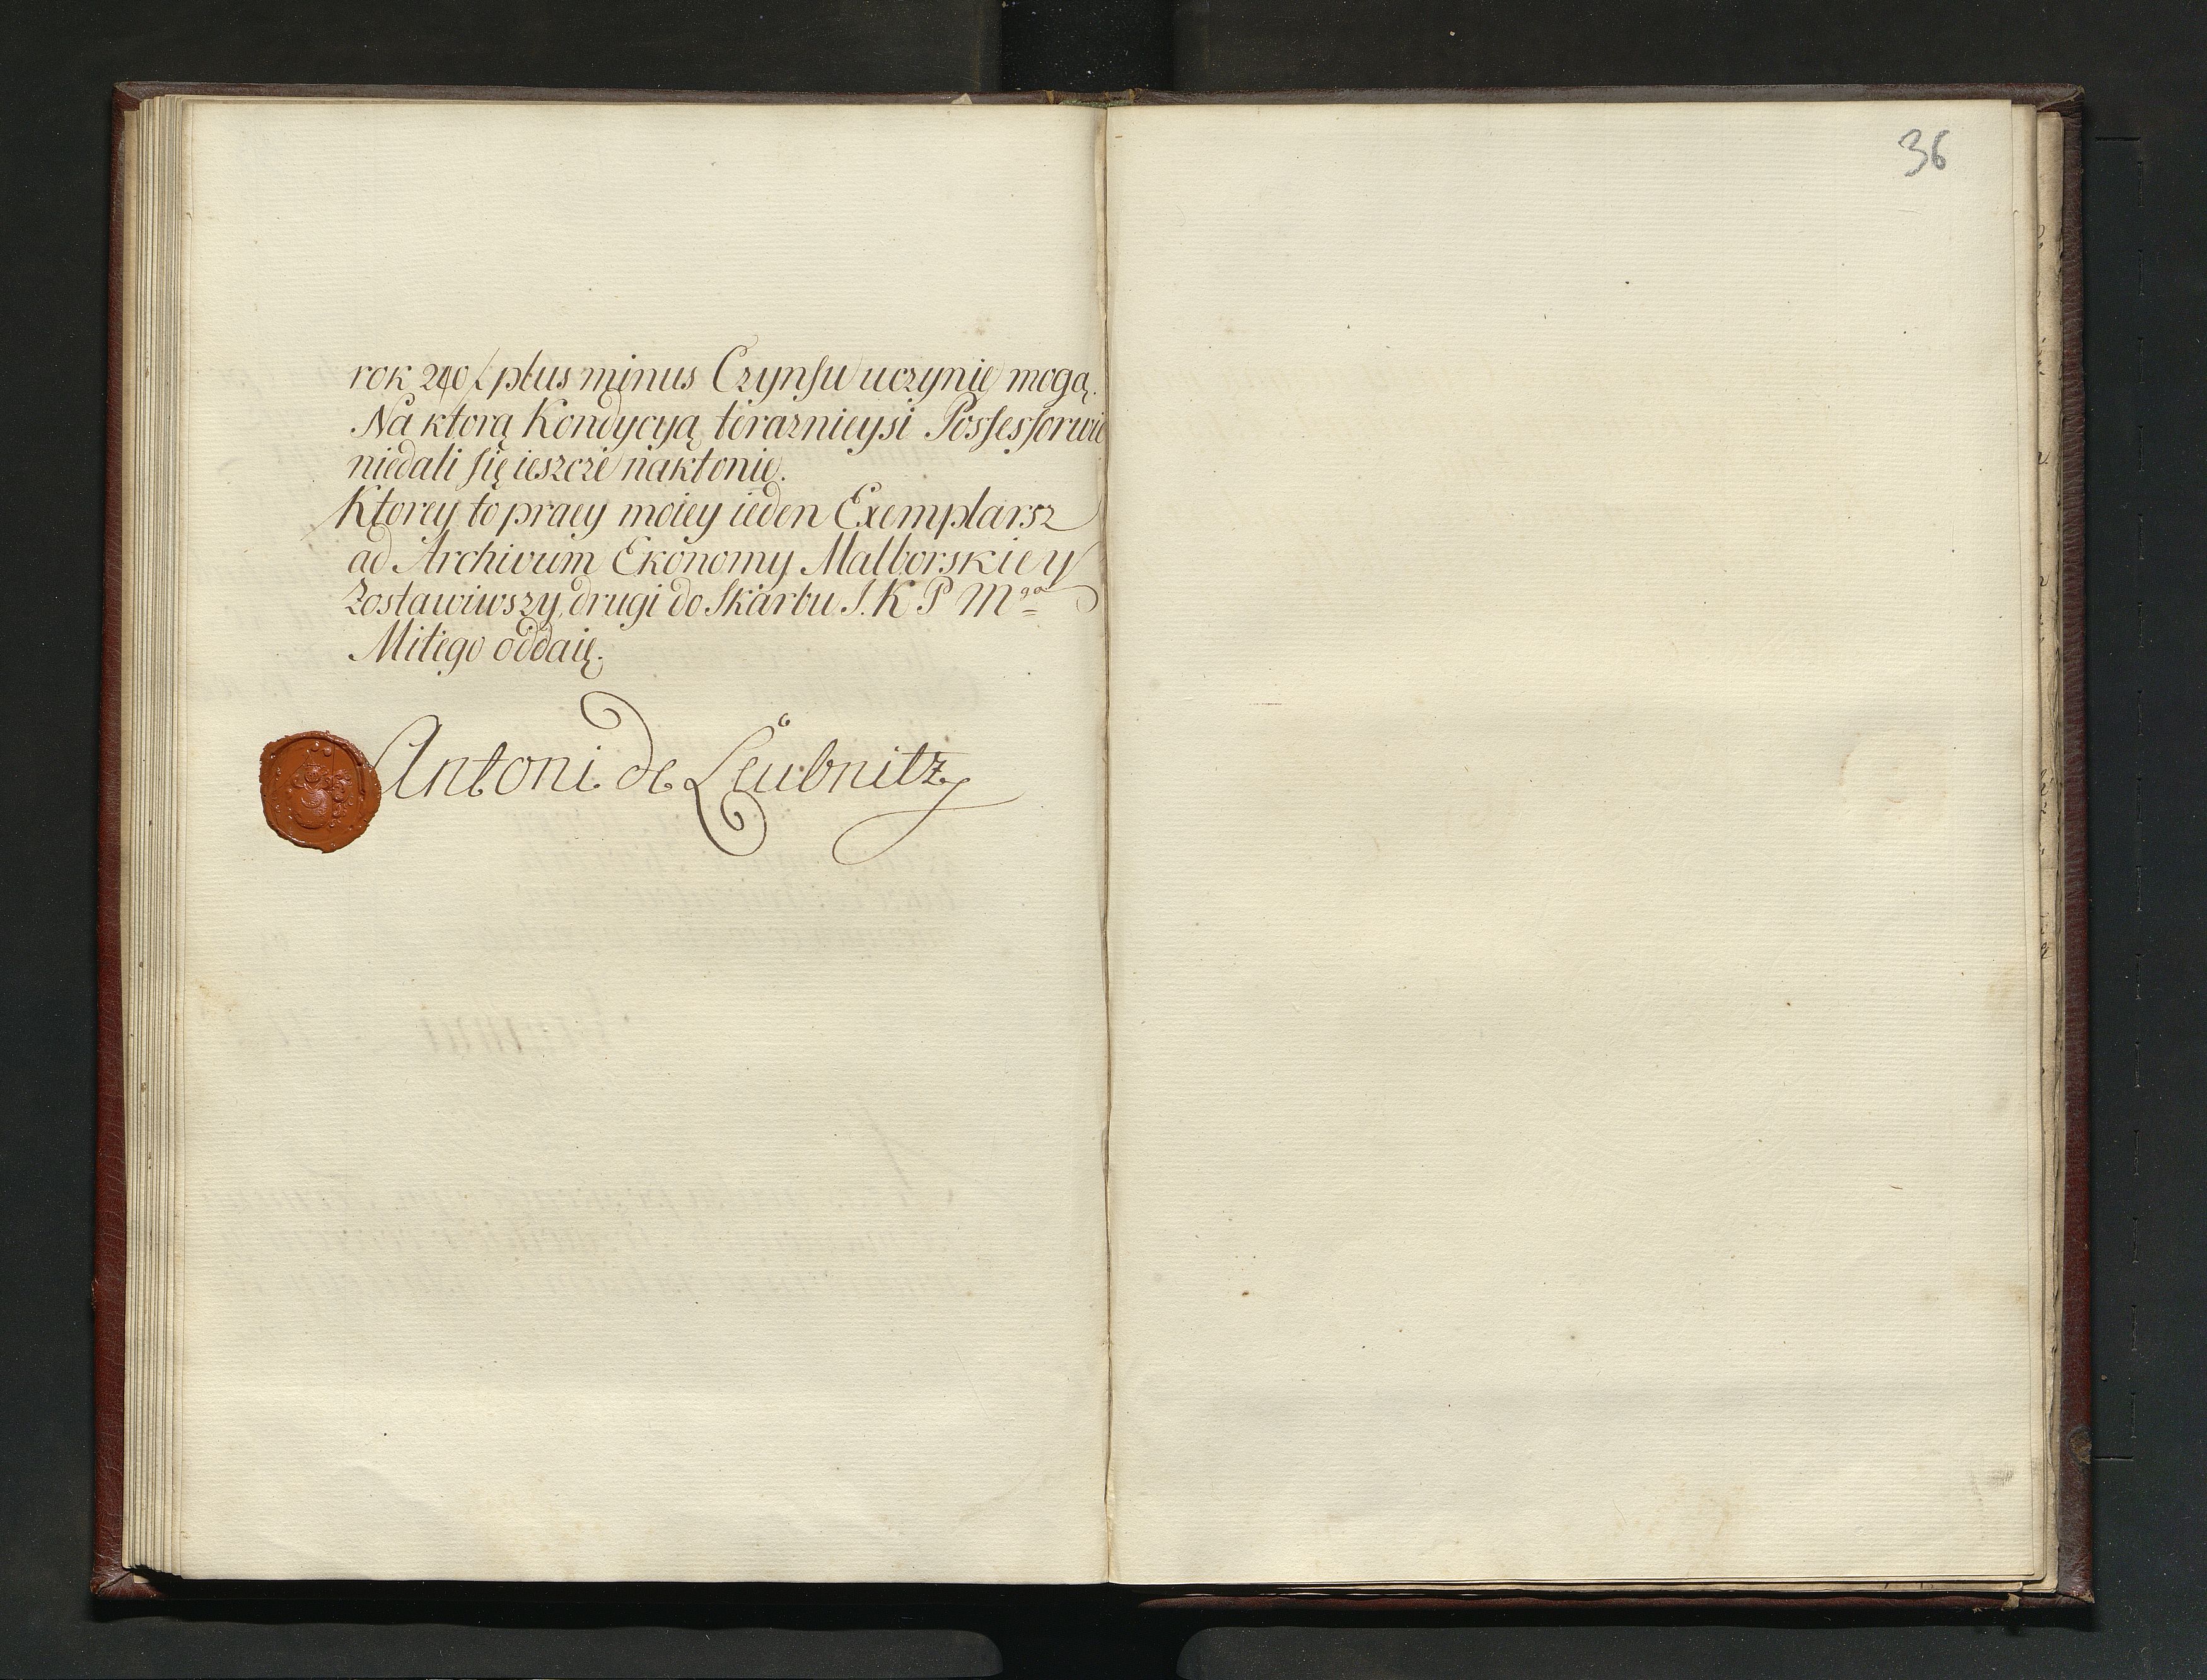 rok 240 plus minus Czynsu uczynić mogą.
Na ktorą Kondycyią teraznieysi Possessorwie
niedali się ieszcze nakłonić.
Ktorey to pracy moiey ieden Exemplarsz
ad Archivum Ekonomy Malborskiey
Zostawiwszy, drugi do Skarbu J. K P Mgo
Miłego oddaię.
Antoni de Leubnitz
36